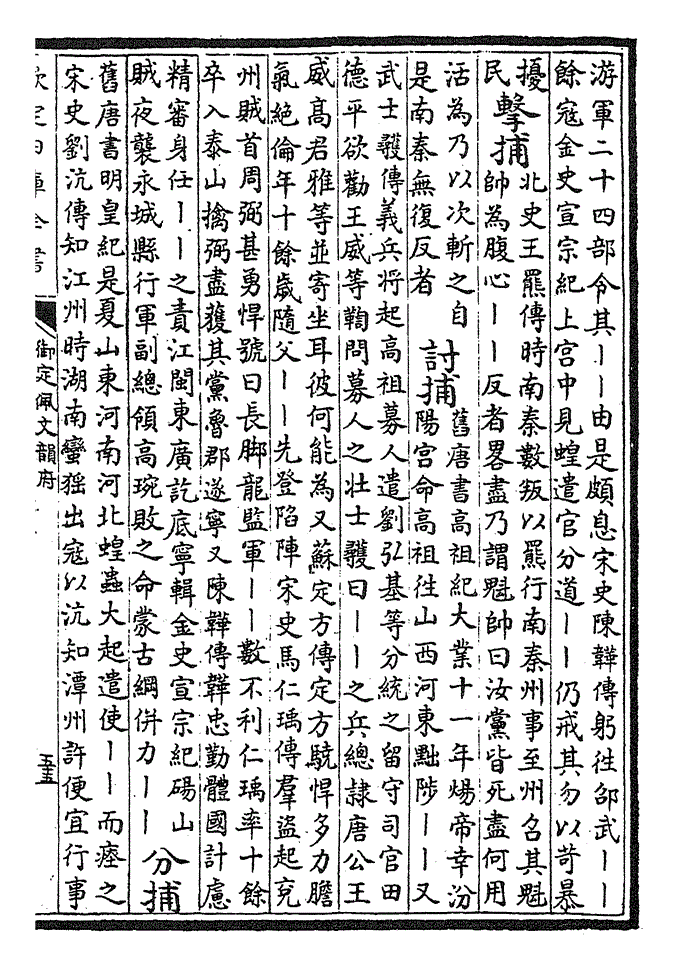 游軍二十四部令其丨丨由是頗息宋史陳韡傳躬徃邵武丨丨
餘寇金史宣宗紀上宫中見蝗遣官分道丨丨仍戒其勿以苛暴
擾
民
擊捕
北史王羆傳時南秦數叛以羆行南秦州事至州召其魁
帥為腹心丨丨反者畧盡乃謂魁帥曰汝黨皆死盡何用
活為乃以次斬之自
是南秦無復反者
討捕
舊唐書高祖紀大業十一年煬帝幸汾
陽宫命高祖徃山西河東黜陟丨丨又
武士彠傳義兵将起高祖募人遣劉弘基等分統之留守司官田
德平欲勸王威等鞫問募人之壮士彠曰丨丨之兵總隷唐公王
威高君雅等並寄坐耳彼何能為又蘇定方傳定方驍悍多力膽
氣絶倫年十餘歳隨父丨丨先登陷陣宋史馬仁瑀傳羣盗起兖
州賊首周弼甚勇悍號曰長脚龍監軍丨丨數不利仁瑀率十餘
卒入泰山擒弼盡獲其黨魯郡遂寧又陳韡傳韡忠勤體國計慮
精審身任丨丨之責江閩東廣訖底寧輯金史宣宗紀碭山
賊夜襲永城縣行軍副總領高琬敗之命蒙古綱併力丨丨
分捕
舊唐書明皇紀是夏山東河南河北蝗蟲大起遣使丨丨而瘞之
宋史劉沆傳知江州時湖南蠻猺出寇以沆知潭州許便宜行事
欽定四庫全書
御定佩文韻府